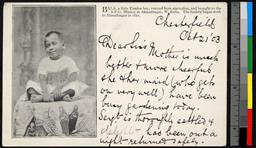 BALA, a little Hindoo boy, rescued from starvation, and brought to the
Mission at Ahmadnagar, W. India. The famine
in Ahmadnagar in 1897.
Chesterfield
Oct 21 '03
Dear Sis: Mother is much
better & more cheerful
she & her maid (who gets
on very well) have been
busy gardening today.
is thoroughly settled &
has been out a
night - returned safely.